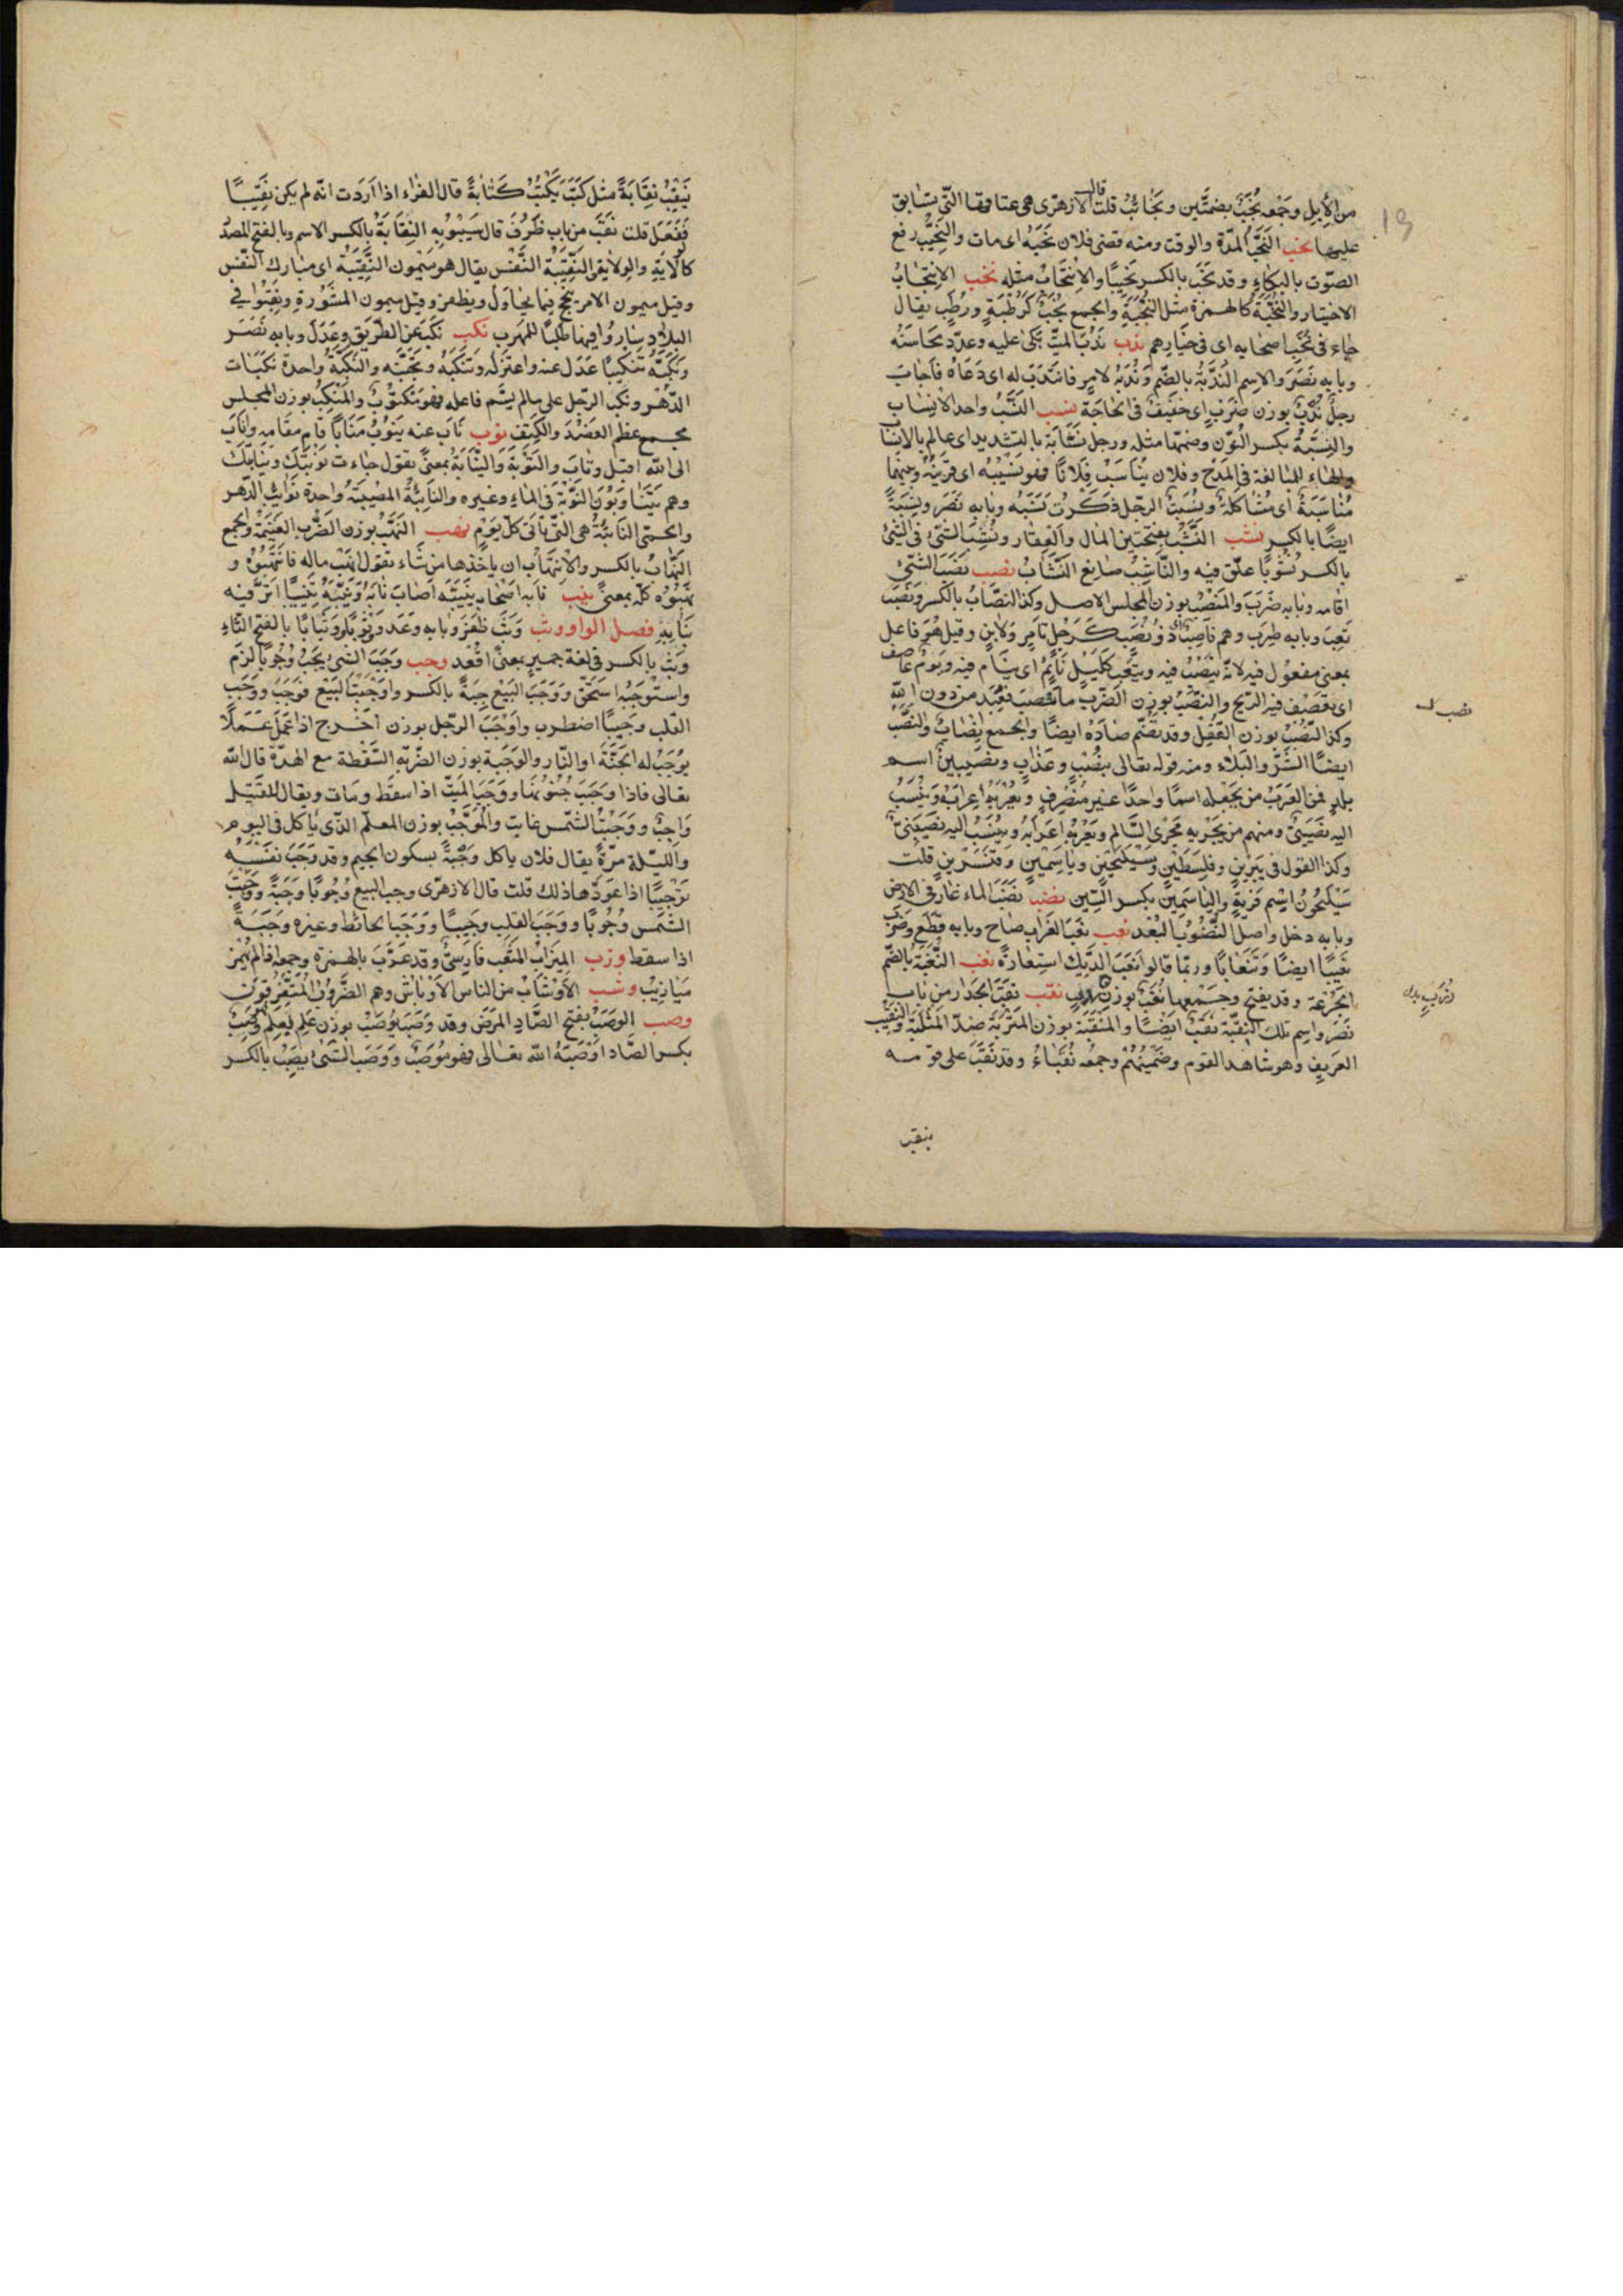 من الإبل وجمعه نُجُبٌ بضمتين ونجائب قلت قال الازهرى هى عتاقها التى يسابق
عليها نحب النَّحْبُ المدّة والوقت ومنه قضى فلان نَحْبَهُ اى مات والنَّحِيبُ رفع
الصوت بالبكاء وقد نَحَبَ بالكسر نَحِيبًا والانتحابُ مثله نخب الانتخابُ
الاختيار والنُّخَبَةُ كالهمزة مثل النُّجَبَةِ والجمع نُخَبٌ كَرُطَبَةٍ ورُطَبٍ يقال
جاء فى نُخَبِ اصحابه اى فى خيارهم ندب نَدَبَ الميّتَ بكى عليه وعدّد محاسنه
وبابه نَصَرَ والاسم النُّدْبَةُ بالضم ونَدَبَهُ لامرٍ فانتدب له اى دعاه فاجاب
رجلٌ نَدْبٌ بوزن ضَرْبٍ اى خفيفٌ فى الحاجة نسب النَّسَبُ واحد الانساب
والنِّسْبَةُ بكسر النون وضمها مثله ورجل نسّابة بالتشديد اى عالم بالانساب
والهاء للمبالغة فى المدح وفلان يناسب فلانًا فهو نسيبه اى قريبه وبينهما
مُناسَبَةٌ اى مُشاكلةٌ ونَسَبْتُ الرجل ذكرت نَسَبَهُ وبابه نَصَرَ ونِسْبَةً
ايضًا بالكسر نشب النَّشَبُ بفتحتين المال والعقار ونَشِبَ الشئ فى الشئ
بالكسر نُشُوبًا علق فيه والناشِبُ صانع النشّاب نصب نَصَبَ الشئ
اقامه وبابه ضَرَبَ والمنصِبُ بوزن المجلس الاصل وكذا النِّصابُ بالكسر ونَصِبَ
تَعِبَ وبابه طَرِبَ وهم ناصبٌ اى ذو نَصَبٍ كرجلٍ تامِرٍ ولابنٍ وقيل هو فاعل
بمعنى مفعول فيه لانه يُنْصَبُ فيه ويُتْعَبُ كليلٍ نائمٍ اى ينام فيه ويومٌ عاصف
اى تعصف فيه الريح والنَّصْبُ بوزن الضرب ما نُصِبَ فعُبِدَ من دون الله
وكذا النُّصْبُ بوزن القُفْل وقد تُضم صاده ايضًا والجمع انصاب والنُّصْبُ
ايضًا الشرّ والبلاء ومنه قوله تعالى بنُصْبٍ وعذابٍ ونصيبين اسم
بلدٍ فمن العرب من يجعله اسمًا واحدًا غير منصرفٍ ويُعْرِبُهُ اعرابَهُ ويَنْسُبُ
اليه نَصِيبِينِىٌّ ومنهم من يجريه مجرى السالم ويعربه اعرابه وينسب اليه نَصِيبىّ
وكذا القول فى يبرين وفلسطين وسيلحين وياسمين وقنسرين قلت
سيلحون اسم قرية والياسمين بكسر السين نضب نَضَبَ الماء غار فى الارض
وبابه دخل واصل النُّضُوبِ البُعْد نعب نَعَبَ الغراب صاح وبابه قطع وضرب
نَعِيبًا ايضًا وتَنْعابًا وربما قالوا نَعَبَ الديك استعارةً نغب النُّغْبَةُ بالضم
الجُرْعَة وقد يفتح وجمعها نُغَبٌ بوزن نقب نَقَبَ الجدار من باب
نصر واسم تلك النَّقْبَة نَقْبٌ ايضًا والمَنْقَبَة بوزن المَتْرَبَة ضد المَثْلَبَة والنقيب
العريف وهو شاهد القوم وضمينهم وجمعه نُقَباءُ وقد نَقَبَ على قومه
ينقب
نصب
يَنْقُبُ نِقابَةً مثل كَتَبَ يَكْتُبُ كِتابَةً قال الفراء اذا اردت انه لم يكن نقيبًا
ففعل قلت نَقُبَ من باب ظَرُفَ قال سيبويه النِّقابَةُ بالكسر الاسم وبالفتح المصدر
كالوِلاية والوَلاية والنَّقِيبَةُ النَّفْس يقال هو ميمون النقيبة اى مبارك النفس
وقيل ميمون الامر ينجح فيما يحاول ويظفر وقيل ميمون المشورة ونقّبوا فى
البلاد ساروا فيها طلبًا للمهرب نكب نَكَبَ عن الطريق عدل وبابه نَصَرَ
ونَكَّبَهُ تنكيبًا عدل عنه واعتزله وتنكّبه وتجنّبه والنَّكْبَةُ واحدة نَكَباتِ
الدهر ونُكِبَ الرجل على ما لم يسمّ فاعله فهو منكوب والمَنْكِبُ بوزن المجلس
مجمع عظم العضد والكتف نوب نابَ عنه ينوب منابًا قام مقامه واناب
الى الله اقبل وتاب والنوبة والنيابة بمعنى تقول جاءت نوبتك ونيابتك
وهم يتناوبون النَّوْبَةَ فى الماء وغيره والنائبةُ المصيبةُ واحدة نوائب الدهر
والحمّى النائبةُ هى التى تأتى كلّ يوم نهب النَّهْبُ بوزن الضرب الغنيمة والجمع
النِّهابُ بالكسر والانتهابُ ان يأخذها من شاء تقول انهب ماله فانتهبوه و
نهبوه كلّه بمعنى نيب نابه اصحابه نَيَّبَهُ اصاب نابَهُ ونَيَّبَهُ تنييبًا اثّر فيه
بنابه فصل الواو وثب وَثَبَ ظفر وبابه وعد ووُثُوبًا ووثابًا بالفتح الثاء
وثب بالكسر فى لغة حمير بمعنى اقعد وجب وجب الشئ يجب وجوبًا لزم
واستوجبه استحق ووجب البيع جِبَةً بالكسر واوجبت البيع فوجب ووجب
القلب وجيبًا اضطرب واوجب الرجل بوزن اخرج اذا عمل عملًا
يوجب له الجنة او النار والوجبة بوزن الضربة السقطة مع الهدّة قال الله
تعالى فاذا وجبت جنوبها ووجب الميّت اذا سقط ومات ويقال للقتيل
واجبٌ ووجبت الشمس غابت والموجّب بوزن المعلّم الذى يأكل فى اليوم
والليلة مرّة يقال فلان ياكل وَجْبَةً بسكون الجيم وقد وَجَّبَ نفسَه
توجيبًا اذا عوّدها ذلك قلت قال الازهرى وجب البيع وجوبًا وجِبَةً ووجبت
الشمس وجوبًا ووجب القلب وجيبًا ووجب الحائط وغيره وَجْبَةً
اذا سقط وزب الميزاب المثعب فارسىّ وقد عُرّب بالهمزة وجمعه اذا لم يهمز
ميازيب وشب الاوشاب من الناس الاوباش وهم الضروب المتفرقون
وصب الوصب بفتح الصاد المرض وقد وصب يوصب بوزن علم يعلم فهو وصِبٌ
بكسر الصاد اوصبه الله تعالى فهو مُوصَبٌ ووصب الشئ يصب بالكسر